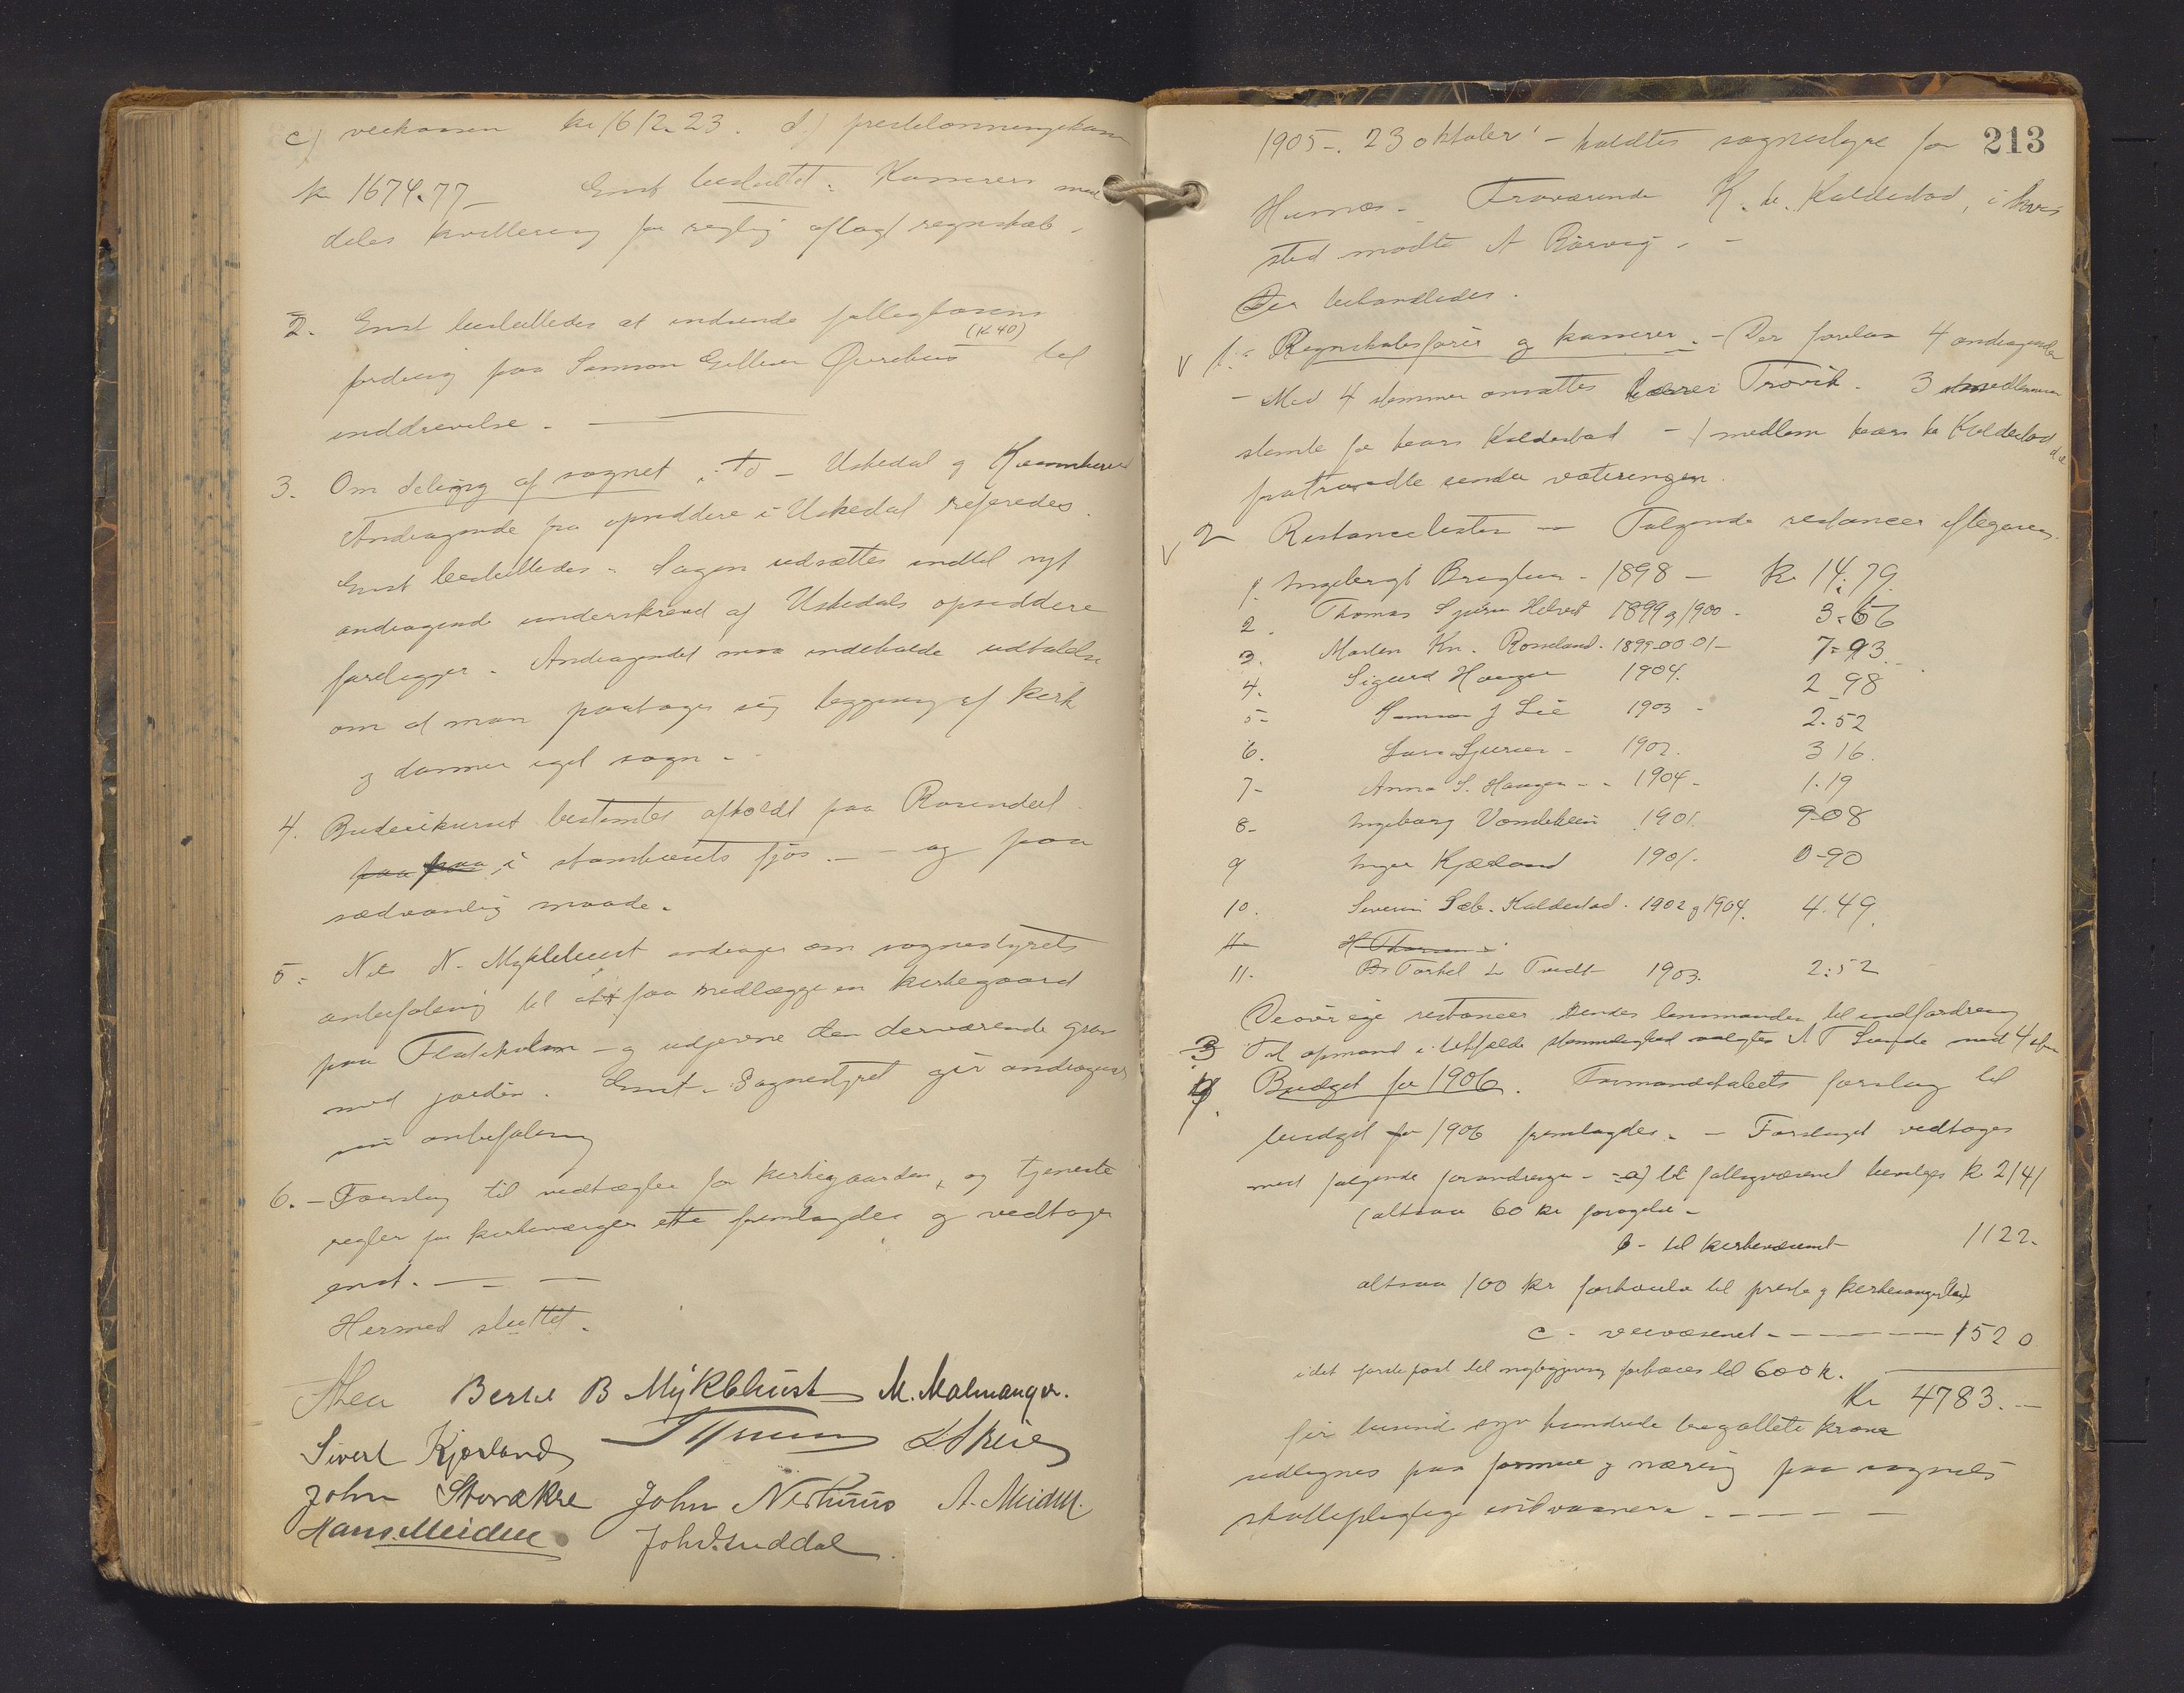 c) veikassen kr 1612.23. d) prestelønningskass
kr 1674.77 Enst besluttet. Kæmneren med
deles kvittering for rigtig aflagt regnskab.
2. Enst besluttedes at indsende fattigkasens
(k 40)
fordring paa Samson til
inddrivelse.
3. Om deling af sognet i to - Uskedal og
Andragende fra opsiddere i Uskedal refereredes.
Enst besluttedes. Sagen udsættes indtil nyt
andragende underskrevet af Uskedals opsiddere
foreligger. Andragendet maa indeholde udtalelse
om at man paatager sig bygging af kirk
og danner eget sogn.
4. Budeiekurset bestemtes afholdt paa Rosendal
paa paa i stambrukets fjøs. og paa
sædvanlig maade.
5. Nils N. Myklebust andrager om sognestyrets
anbefaling til at faa nedlægge en kirkegaard
paa Flateholm - og udjevne den derværende grav
med jorden. Enst. Sognestyret gir andragend
sin anbefaling
6. - Forslag til vedtægter for kirkegaarden, og tjeneste
regler for kirkeværger etc fremlagdes og vedtoges
enst.
Hermed sluttet.
Bertel B Myklebust M. Malmanger.
Sivert Kjærland
John Storakre John Neshuus A. Meidell.
Hans Meidell Joh. Guddal
213
1905-. 23 oktober - holdtes sognestyre for
Fraværende K. L. Kaldestad, i hvis
sted mødte A Rørvig.
Der behandledes.
V 1. Regnskabsfører og kæmner. - Der forelaa 4 andragender
- Med 4 stemmer ansattes lærer Trovik. 3 medlemmer
stemte for Lars Kaldestad - 1 medlem Lars L Kaldestad
fratraadte under voteringen.
V 2 Restancelister - Følgende restancer eftergaves.
1. Ingebrigt 1898 - Kr 14.79.
2. Thomas 1899 og 1900 - 3-66
3. Morten Kn. Rosseland. 1899-00-01- 7-93
4. Sigurd Haugen 1904. 2 98
5- Samson J Lie 1903 - 2.52
6. Lars Sjursen - 1902. 3 16.
7- Anna S. Haugen - - 1904 - 1.19
8- Ingeborg 1901. 9-08
9 Inger Kjærland 1901. 0-90
10. Severin Sæb. Kaldestad. 1902 og 1904. 4.49.
11 H Thomsen
11. Torkel L Tvedt 1903. 2:52
De øvrige restancer sendes lensmanden til indfordring
3 Til opmand i tilfælde stemmelighed valgtes A T Lunde med 4 st
4. Budget for 1906. Formandskabets forslag til
budget for 1906 fremlagdes. - Forslaget vedtages
med følgende forandringer - a) til fattigvæsenet bevilges kr 2141
(altsaa 60 kr forøgelse -
b - til kirkevæsenet 1122.
altsaa 100 kr forhøielse til prest og
c - veivæsenet - 1520
idet første post til forhøies til 600 k.
Kr 4783.-
fire tusind syv hundrede treogotteti kroner
udlignes paa formue og næring paa sognets
skattepligtige indvaanere